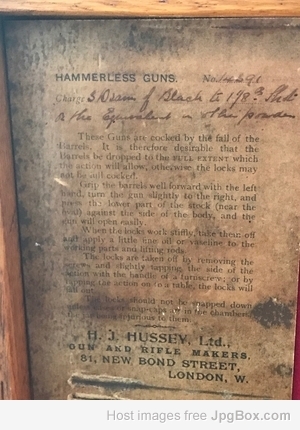 HAMMERLESS GUNS. No. 14291
Charge 3 Dram of Black to 1 1/8 oz Shot
& the Equivalent in other powder
These Guns are cocked by the fall of the
Barrels. It is therefore desirable that the
Barrels be dropped to the FULL EXTENT which
the action will allow, otherwise the locks may
not be full cocked.
Grip the barrels well forward with the left
hand, turn the gun slightly to the right, and
press the lower part of the stock (near the
toe) against the side of the body, and the
gun will open easily.
When the locks work stiffly, take them off
and apply a little fine oil or vaseline to the
working parts and lifting rods.
The locks are taken off by removing the
screws and slightly tapping the side of the
action with the handle of a turnscrew, or by
tapping the action on to a table, the locks will
fall out.
The locks should not be snapped down
without snap caps in the chambers
being injurious to them.
H. J. HUSSEY, Ltd.,
GUN AND RIFLE MAKERS,
81, NEW BOND STREET,
LONDON, W.
Host images free JpgBox.com